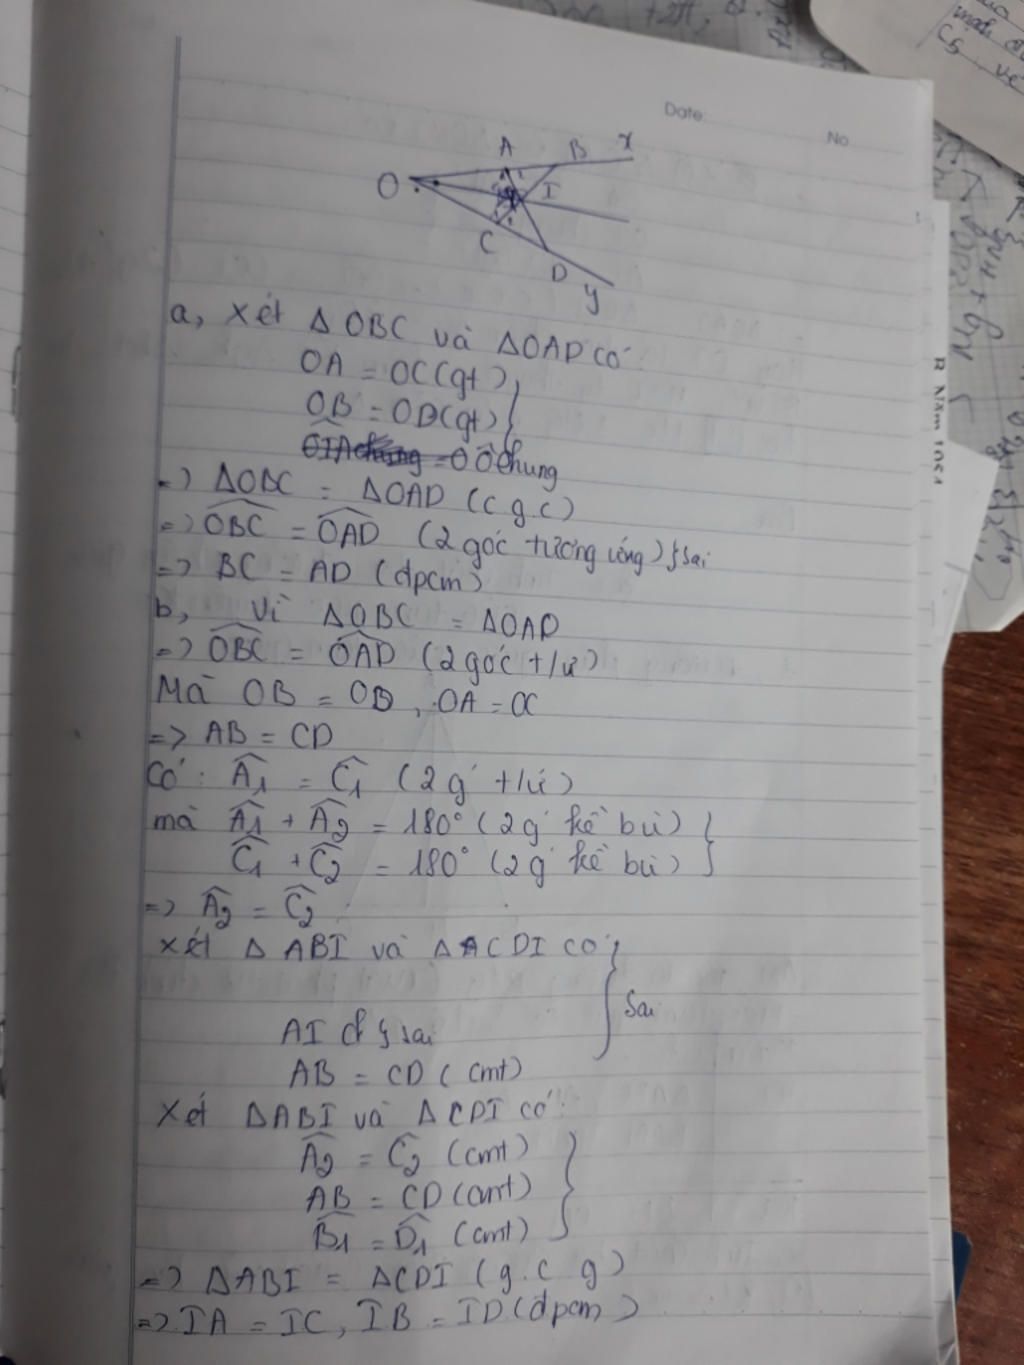 Date:
No
A B x
O I
C
D
y
a, xét Δ OBC và ΔOAD có
OA = OC (gt)
OB = OD (gt)
Ô chung
=) ΔOBC = ΔOAD (c g c)
=) OBC = OAD (2 góc tương ứng) } sai
=> BC = AD (đpcm)
b, Vì ΔOBC = ΔOAD
=> OBC = OAD (2 góc t/ứ)
Mà OB = OD, OA = OC
=> AB = CD
Có: Â1 = Ĉ1 (2 g t/ứ)
mà Â1 + Â2 = 180° (2 g kề bù) }
Ĉ1 + Ĉ2 = 180° (2 g kề bù)
=> Â2 = Ĉ2
xét Δ ABI và Δ CDI có } Sai
AI } sai
AB = CD (cmt)
Xét ΔABI và ΔCDI có:
Â2 = Ĉ2 (cmt)
AB = CD (cmt)
B̂1 = D̂1 (cmt)
=) ΔABI = ΔCDI (g.c g)
=> IA = IC, IB = ID (đpcm)